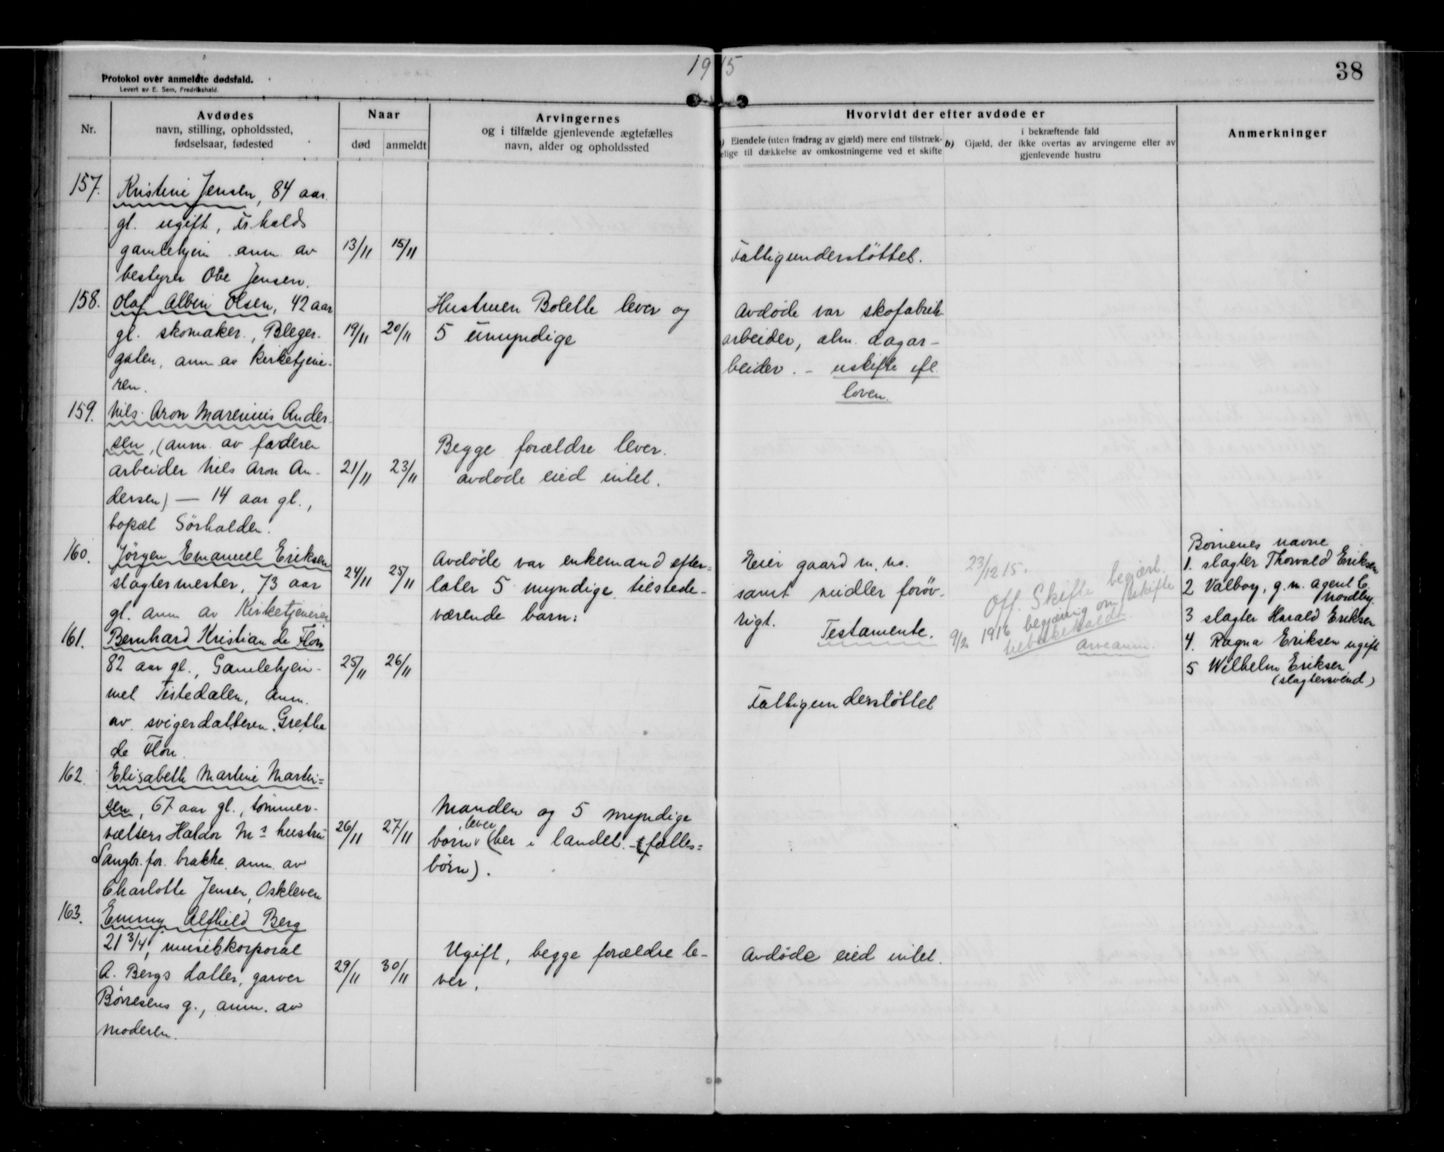 1915
38
Protokol over anmeldte dødsfald.
Levert av E. Sem, Fredrikshald.
Nr.
Avdødes
navn, stilling, opholdssted,
fødselsaar, fødested
Naar
død
anmeldt
Arvingernes
og i tilfælde gjenlevende ægtefælles
navn, alder og opholdssted
Hvorvidt der efter avdøde er
Eiendele (uten fradrag av gjæld) mere end tilstræk-
elige til dækkelse av omkostningerne ved et skifte
b)
i bekræftende fald
Gjæld, der ikke overtas av arvingerne eller av
gjenlevende hustru
Anmerkninger
157.
Kristine Jensen, 84 aar
gl. ugift, Fr.halds
gamlehjem anm. av
bestyrer Ove Jensen.
13/11
15/11
Fattigunderstøttet.
158.
Olaf Albin Olsen, 42 aar
gl. skomaker, Bleger-
gaten, anm av kirketjene-
ren.
19/11
20/11
Hustruen Bolette lever og
5 umyndige
Avdøde var skofabrik
arbeider, alm. dagar-
beider. - uskifte efl
loven.
159.
Nils Aron Marenius Ander-
sen, (anm. av faderen
arbeider Nils Aron An-
dersen) — 14 aar gl.,
bopæl Sørhalden.
21/11
23/11
Begge forældre lever.
avdøde eied intet.
160.
Jørgen Emanuel Eriksen
slagtermester, 73 aar
gl. anm av Kirketjeneren
24/11
25/11
Avdøde var enkemand efter-
later 5 myndige tilstede-
værende barn:
Eier gaard m.m.
samt midler forøv-
rigt. Testamente.
23/12 15.
Off. Skifte begjært.
9/2 1916 begjæring om skifte
tilbakekaldt
arveanm.
Børnenes navne
1. slagter Thorvald Eriksen
2 Valborg, g.m. agent C.
Nordby.
3 slagter Harald Eriksen
4. Ragna Eriksen ugift
5 Wilhelm Eriksen
(slagtersvend)
161.
Bernhard Kristian de Flon
82 aar gl., Gamlehjem-
met Tistedalen, anm.
av svigerdatteren Grethe
de Flon.
25/11
26/11
Fattigunderstøttet
162.
Elisabeth Martine Martin-
sen, 67 aar gl., tømmer-
vælters Haldor M.s hustru
Langbr. for. brakke. anm. av
Charlotte Jensen, Oskleven
26/11
27/11
Manden og 5 myndige
børn lever (her i landet. - fælles-
børn).
163.
Emmy Alfhild Berg
21 3/4, musikkorporal
A. Bergs datter, garver
Børresens g., anm. av
moderen.
29/11
30/11
Ugift, begge forældre le-
ver.
Avdøde eied intet.